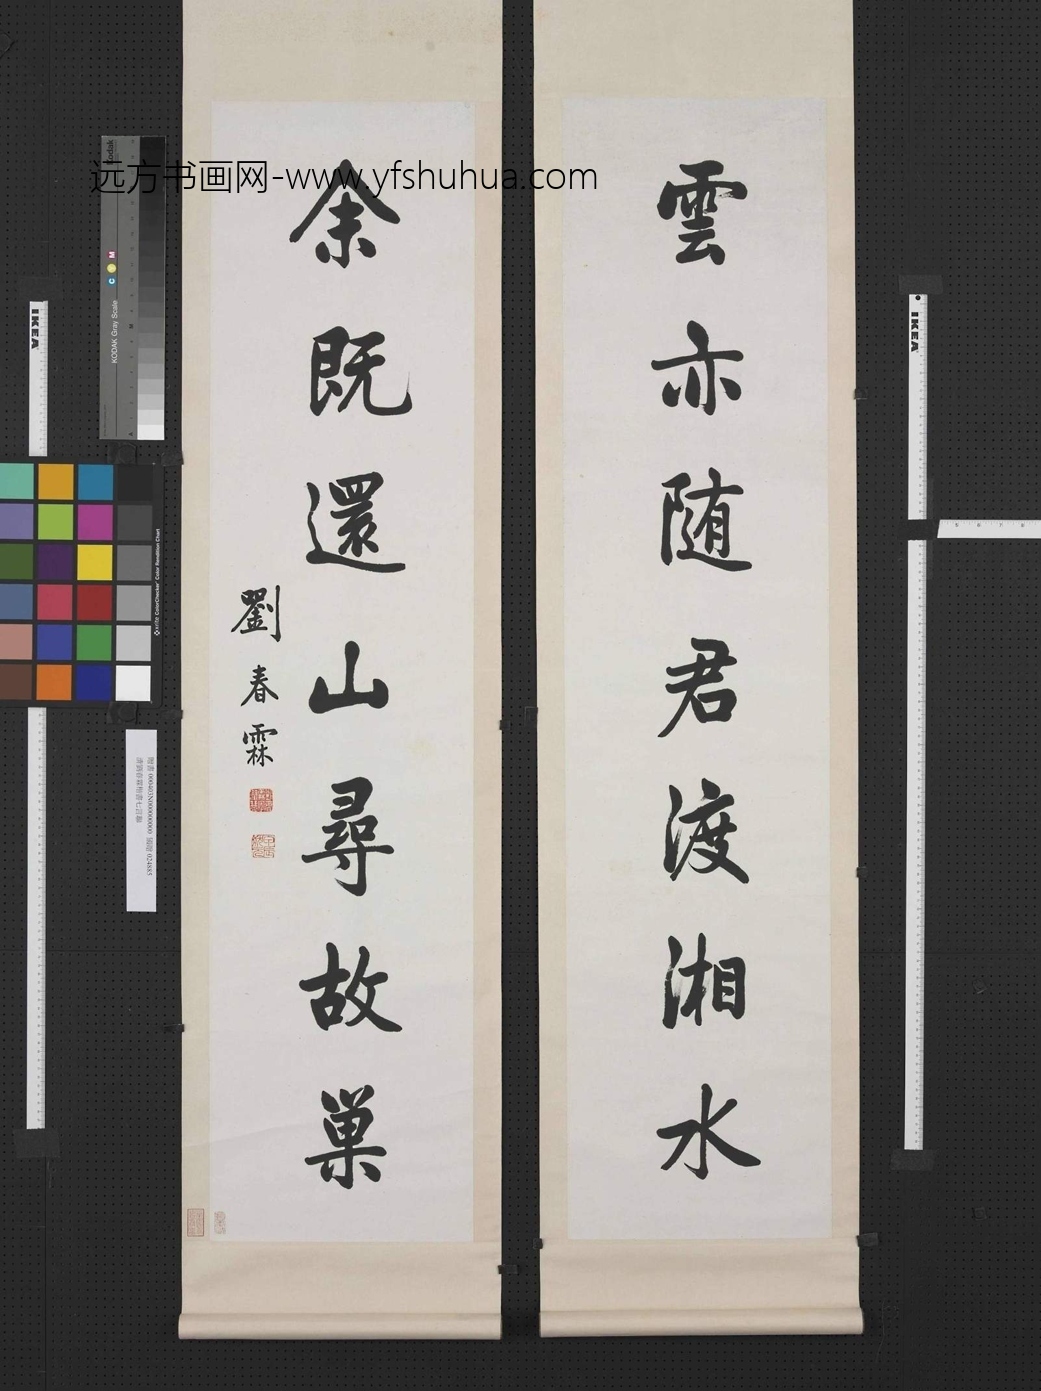 远方书画网-www.yfshuhua.com
雲亦随君渡湘水
余既還山尋故巢
劉春霖
Kodak
KODAK Gray Scale
C Y M
IKEA
IKEA
5 6 7 8
x-rite ColorChecker Color Rendition Chart